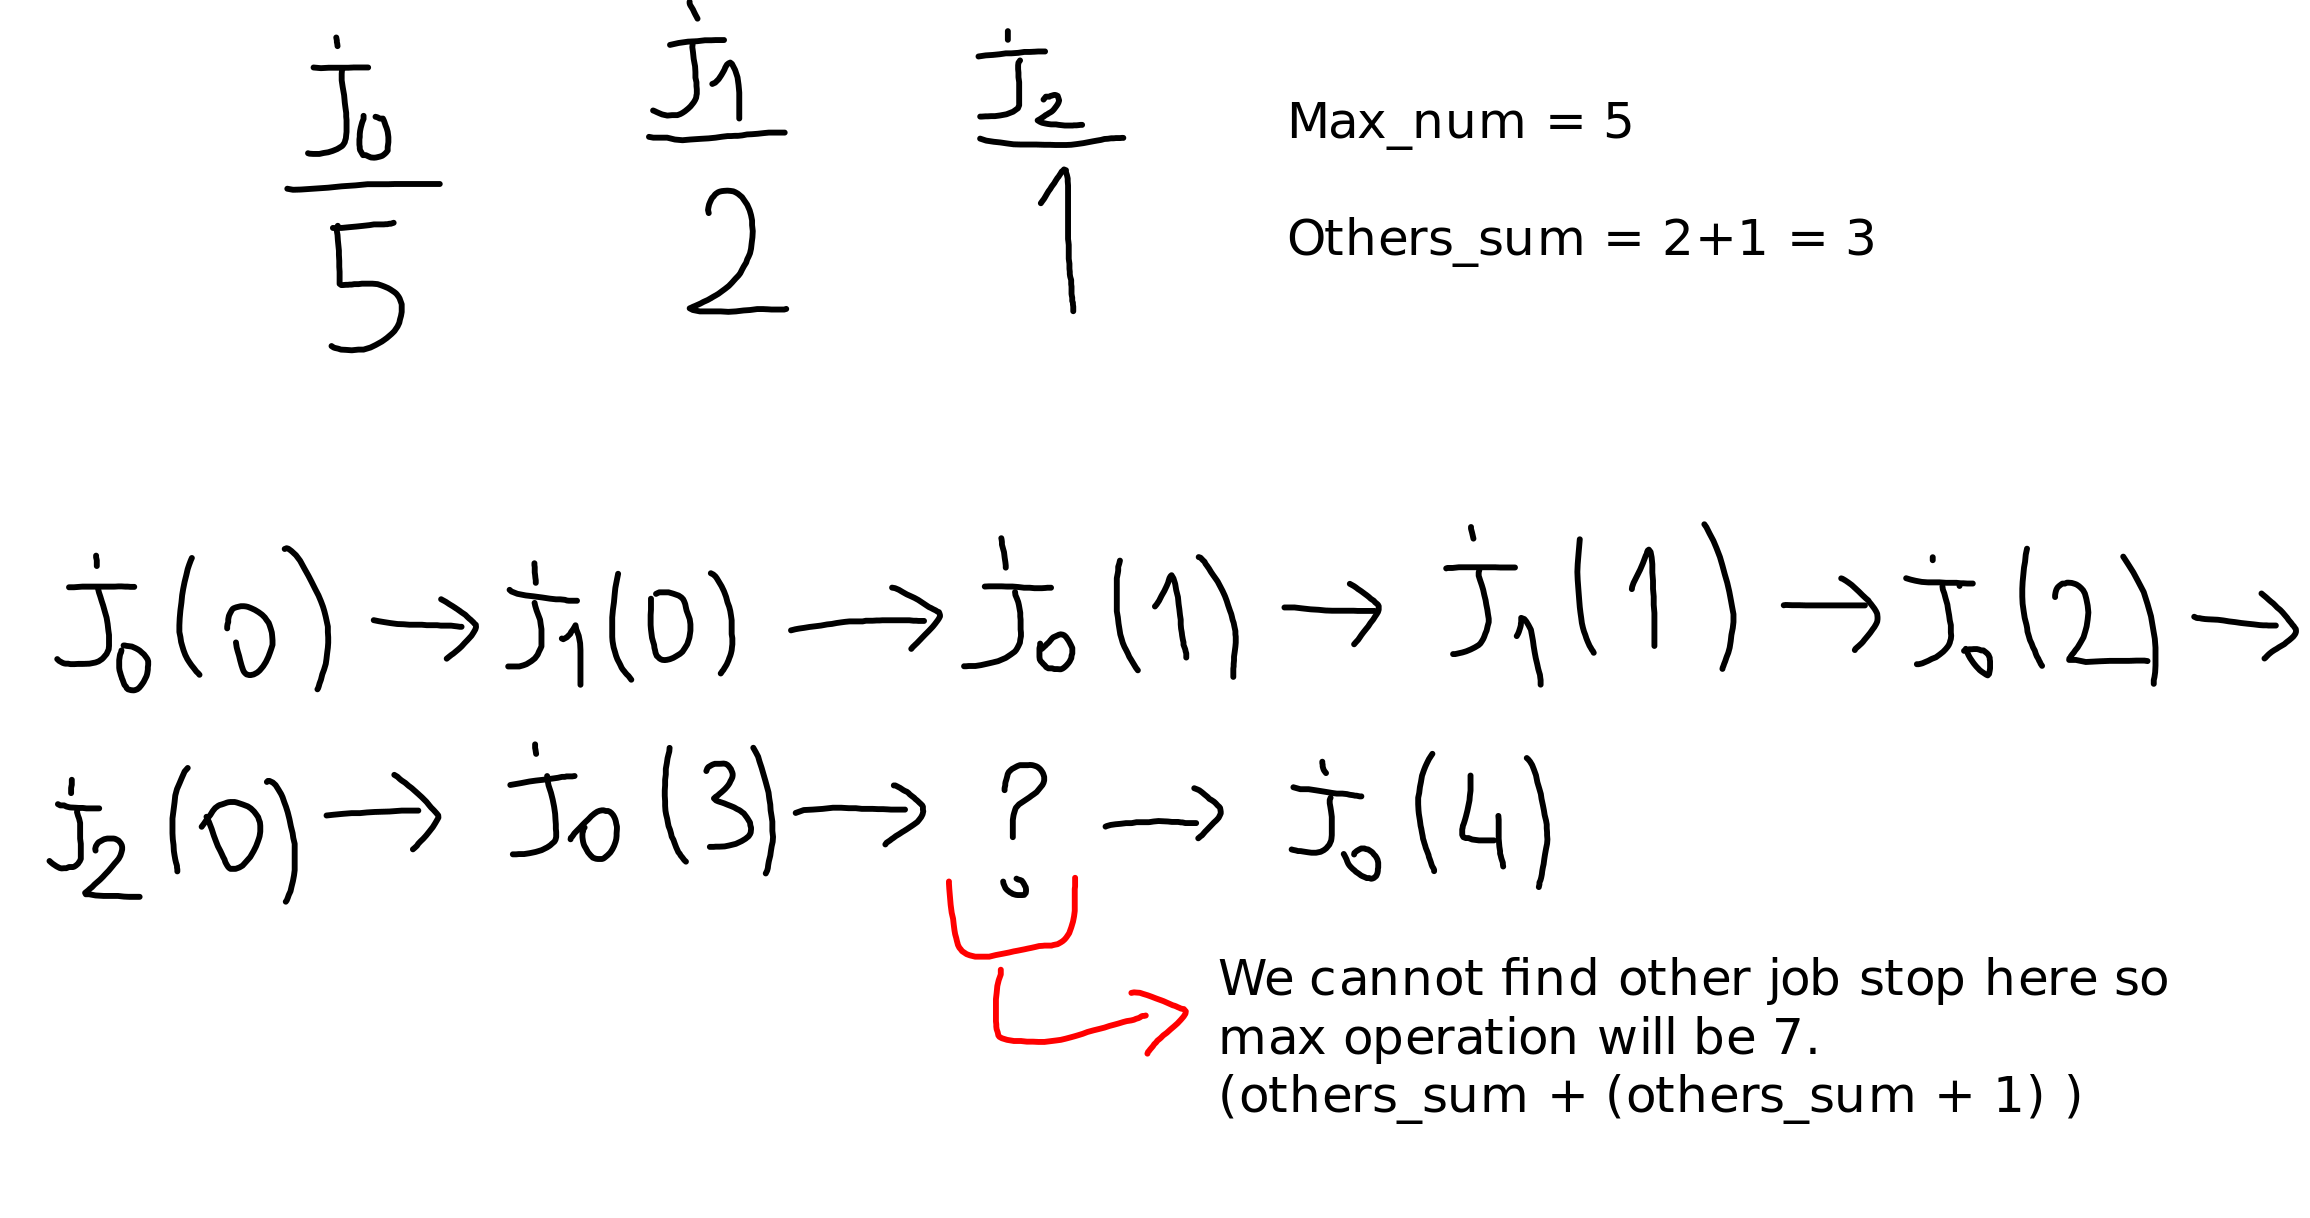 J0 J1 J2
5 2 1
Max_num = 5
Others_sum = 2+1 = 3
J0(0) → J1(0) → J0(1) → J1(1) → J0(2) →
J2(0) → J0(3) → ? → J0(4)
We cannot find other job stop here so
max operation will be 7.
(others_sum + (others_sum + 1) )